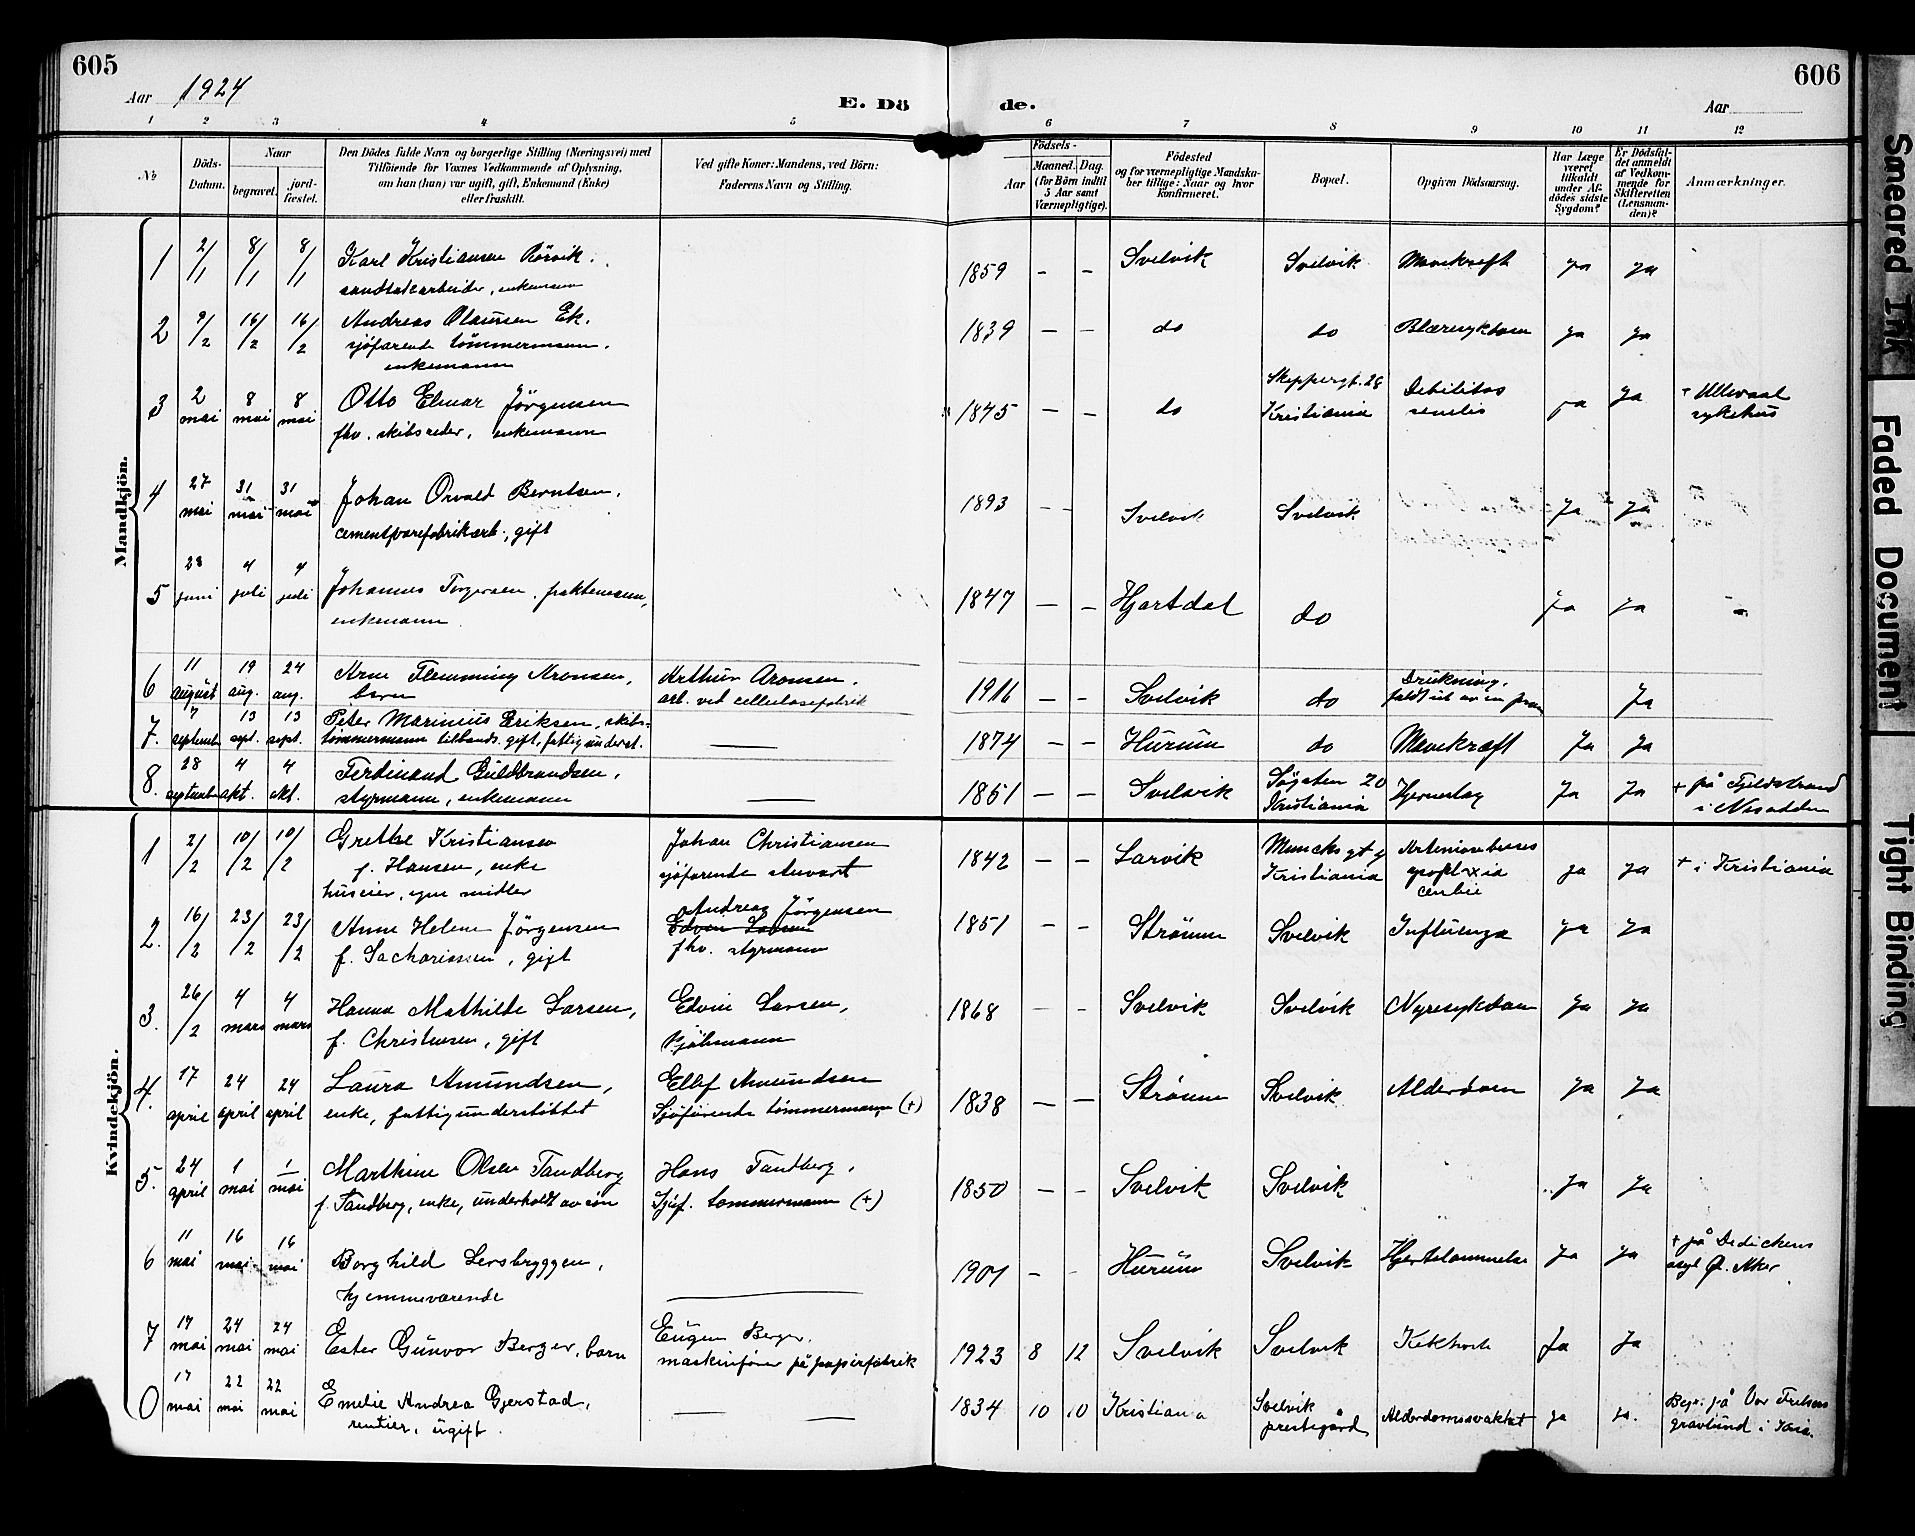 605
606
Aar 1924
E. Dö de.
Aar
1 2 3 4 5 6 7 8 9 10 11 12
No
Döds-
Datum.
Naar
begravet.
jord-
fæstet.
Den Dödes fulde Navn og borgerlige Stilling (Næringsvei) med
Tilföiende for Voxnes Vedkommende af Oplysning,
om han (hun) var ugift, gift, Enkemand (Enke)
eller fraskilt.
Ved gifte Koner: Mandens, ved Börn:
Faderens Navn og Stilling.
Födsels-
Aar
Maaned. Dag.
(for Börn indtil
5 Aar samt
Værnepligtige).
Födested
og for værnepligtige Mandska-
ber tillige: Naar og hvor
konfirmeret.
Bopæl.
Opgiven Dödsaarsag.
Har Læge
været
tilkaldt
under Af-
dödes sidste
Sygdom?
Er Dödsfal-
det anmeldt
af Vedkom-
mende for
Skifteretten
(Lensman-
den)?
Anmærkninger.
Mandkjön.
1 2/1 8/1 8/1 Karl Kristiansen Rörvik. 1859 - - Svelvik Svelvik Mavekræft ja ja
enkemann
2 9/2 16/2 16/2 Andreas Olaussen Ek. 1839 - - do do Blæresykdom ja ja
sjöfarende tömmermann.
enkemann
3 2 mai 8 mai 8 mai Otto Elmar Jörgensen 1845 - - do Skippergt. 28 Kristiania Debilitas senilis ja ja + Ullevaal sykehus
fhv. skibsreder, enkemann
4 27 mai 31 mai 31 mai Johan Osvald Berntsen. 1893 - - Svelvik Svelvik ja ja
cementvarefabrikarb., gift
5 28 juni 4 juli 4 juli Johannes Torgersen, 1847 - - Hjartdal do ja ja
enkemann
6 11 august 19 aug. 24 aug. Arne Flemming Aronsen, Arthur Aronsen. 1916 - - Svelvik do Drukning, ja
barn arb. ved cellulosefabrik faldt ut av en pram
7. 7 september 13 sept. 13 sept. Peter Marinius Eriksen, skibs- 1874 - - Hurum do Mavekræft Ja Ja
tömmermann tillands. gift, fattigunderst.
8. 28 september 4 okt. 4 okt. Ferdinand Guldbrandsen, 1851 - - Svelvik 20 Kristiania Hjerneslag Ja Ja + på Fjeldstrand
styrmann, enkemann i Nesodden
Kvindekjön.
1 2/2 10/2 10/2 Grethe Kristiansen Johan Christiansen 1842 - - Larvik Muncks gt 4 Kristiania apoplexia ja ja + i Kristiania
f. Hansen, enke sjöfarende stuvart
huseier, egne midler
2. 16/2 23/2 23/2 Anne Helene Jörgensen Andreas Jörgensen 1851 - - Strømm Svelvik Influenza ja ja
f. Sachariassen, gift Edvin Larsen
fhv. styrmann
3. 26/2 4 mars 4 mars Hanna Mathilde Larsen, Edvin Larsen, 1868 - - Svelvik Svelvik Nyresykdom ja ja
f. Christensen, gift kjöbmann
4. 17 april 24 april 24 april Laura Amundsen, Ellef Amundsen 1838 - - Strømm Svelvik Alderdom ja ja
enke, fattigunderstöttet Sjöfarende tömmermann (+)
5. 24 april 1 mai 1 mai Marthine Olsen Tandberg Hans Tandberg. 1850 - - Svelvik Svelvik ja ja
f. Tandberg, enke, underholdt av sön Sjöf. tømmermann (+)
6 11 mai 16 mai 16 mai Borghild Lersbryggen, 1901 - - Hurum Svelvik Hjertelammelse ja ja + på Dedichens
hjemmeværende asyl Ø. Aker
7 17 mai 24 mai 24 mai Ester Gunvor Berger, barn Eugen Berger. 1923 8 12 Svelvik Svelvik Kikhoste Ja Ja
maskinfører på papirfabrik
0 17 mai 22 mai 22 mai Emelie Andrea Gjerstad, 1834 10 10 Kristiania Svelvik prestegård Alderdomssvakhet ja ja. Begr. på Vor Frelsers
rentier, ugift. gravlund i Kria.
Smeared Ink
Faded Document
Tight Binding